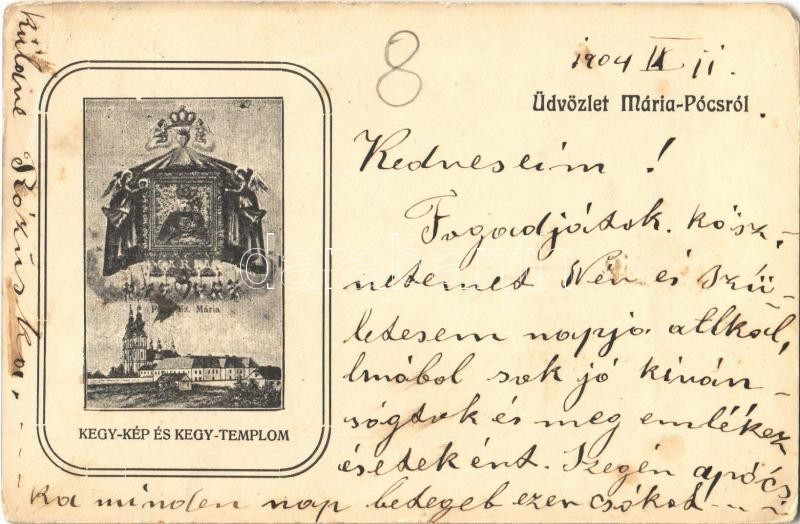 8
1904 IX 11.
Üdvözlet Mária-Pócsról.
Kedveseim!
Fogadjátok kösz-
netemet Név és Szü-
letesem napja alkal,
lmából sok jó kiván-
ságtok és meg emlékez
éseteként. Szegén apócs-
ka minden nap betegeb ezer csókot
küldane Rózuska.
MARIA
Mária
KEGY-KÉP ÉS KEGY-TEMPLOM